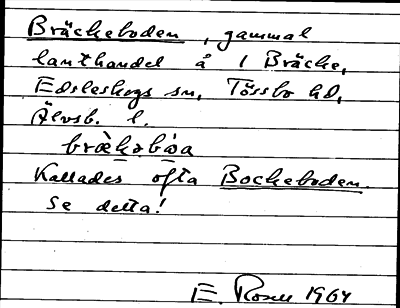 Bräckeboden, gammal
lanthandel å 1 Bräcke,
Edsleskogs sn, Tössbo hd,
Älvsb. l.
bræ̀kəbòa
Kallades ofta Bockeboden.
Se detta!
E. Rosell 1964